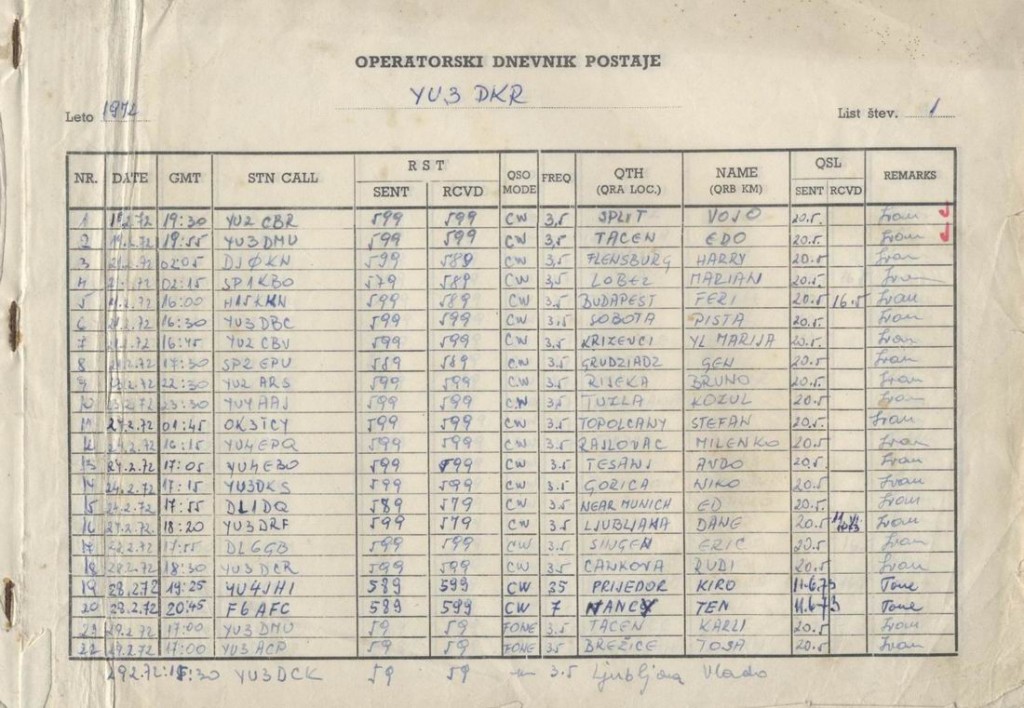 OPERATORSKI DNEVNIK POSTAJE
YU3 DKR
Leto 1972 List štev. 1
NR. DATE GMT STN CALL RST QSO MODE FREQ QTH (QRA LOC.) NAME (QRB KM) QSL REMARKS
SENT RCVD SENT RCVD
1 19:30 YU2 CBR 599 599 CW 3,5 SPLIT VOJO 20.5. Ivan
2 19.2.72 19:55 YU3DMU 599 599 CW 3,5 TACEN EDO 20.5. Ivan
3 02:05 DJ0KN 599 589 CW 3,5 FLENSBURG HARRY 20.5 Ivan
4 02:15 SP1KBO 579 589 CW 3,5 LOBEZ MARIAN 20.5 Ivan
5 16:00 HA5KKN 599 589 CW 3.5 BUDAPEST FERI 20.5 16.5 Ivan
6 16:30 YU3DBC 599 599 CW 3.5 SOBOTA PISTA 20.5. Ivan
7 16:45 YU2 CBV 599 599 CW 3.5 KRIZEVCI YL MARIJA 20.5. Ivan
8 17:30 SP2 EPU 589 589 CW 3.5 GRUDZIADZ GEN 20.5 Ivan
9 22:30 YU2 ARS 599 599 CW 3.5 RIJEKA BRUNO 20.5. Ivan
10 23.2.72 23:30 YU4AAJ 599 599 CW 3.5 TUZLA KOZUL 20.5 Ivan
11 24.2.72 01:45 OK3TCY 599 599 CW 3.5 TOPOLCANY STEFAN 20.5. Ivan
12 24.2.72 16:15 YU4EPQ 599 599 CW 3.5 RAJLOVAC MILENKO 20.5 Ivan
13 24.2.72 17:05 YU4EBO 599 599 CW 3.5 TESANJ AVDO 20.5. Ivan
14 24.2.72 17:15 YU3DKS 599 599 CW 3.5 GORICA NIKO 20.5 Ivan
15 24.2.72 17:55 DL1DQ 589 579 CW 3.5 NEAR MUNICH ED 20.5 Ivan
16 27.2.72. 18:20 YU3DRF 599 579 CW 3.5 LJUBLJANA DANE 20.5 Ivan
17 17:55 DL6GB 599 599 CW 3.5 SINGEN ERIC 20.5 Ivan
18 28.2.72 18:30 YU3 DCR 599 599 CW 3.5 CANKOVA RUDI 20.5 Ivan
19 28.2.72 19:25 YU4JHI 589 599 CW 35 PRIJEDOR KIRO 11.6.73 Tone
20 28.2.72 20:45 F6 AFC 589 599 CW 7 NANCY TEN 11.6.73 Tone
21 29.2.72 17:00 YU3 DMU 59 59 FONE 3.5 TACEN KARLI 20.5 Ivan
22 29.2.72 17:00 YU3 ACP 59 59 FONE 3.5 BREŽICE TOJA 20.5 Ivan
29.2.72. YU3DCK 59 59 3.5 Ljubljana Vlado